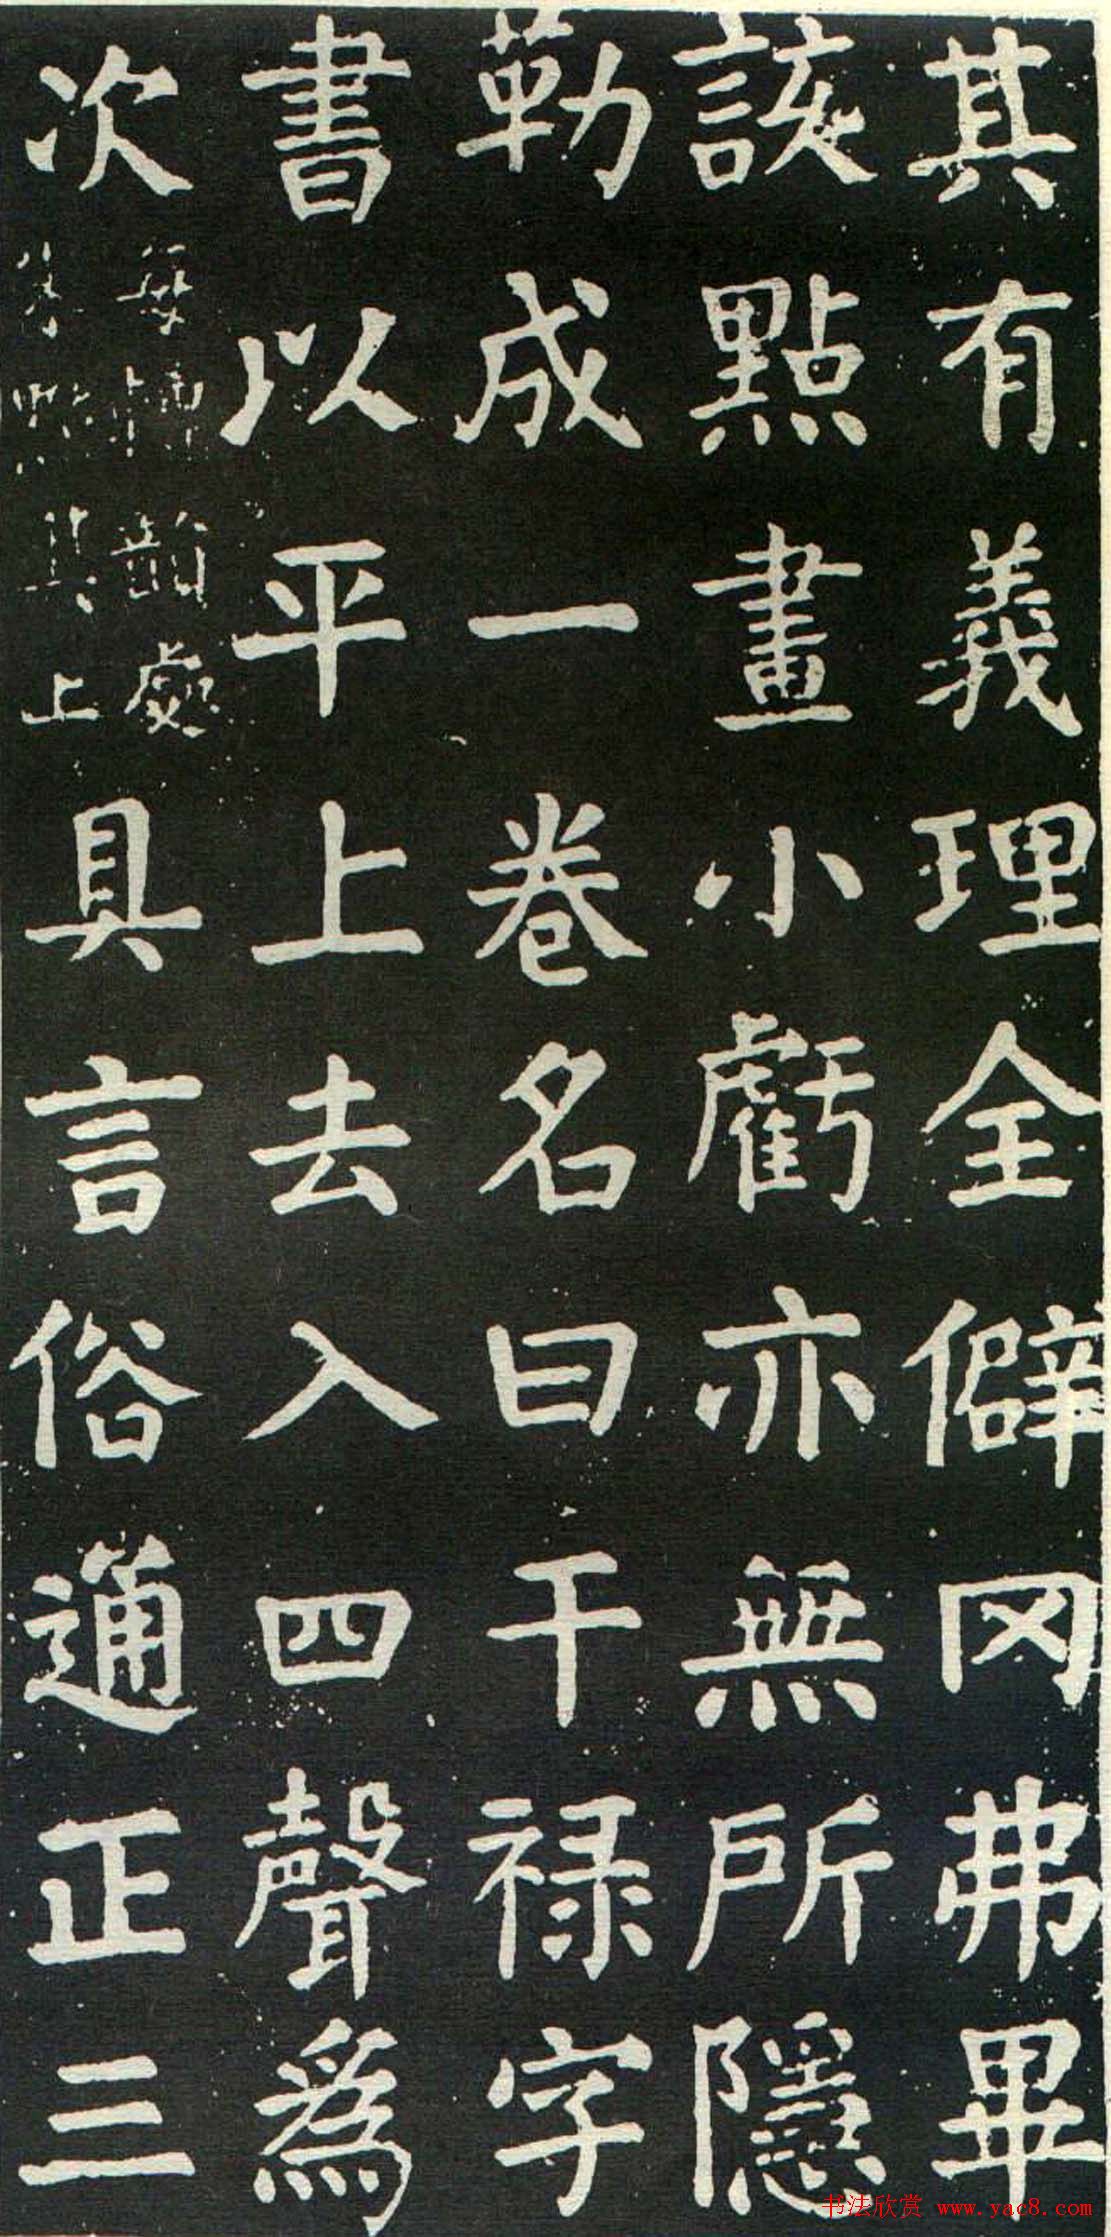 其有義理全僻冈弗畢
該點畫小虧亦無所隱
勒成一卷名曰干禄字
書以平上去入四聲爲
次
每韻處
其上
具言俗通正三
书法欣赏 www.yac8.com